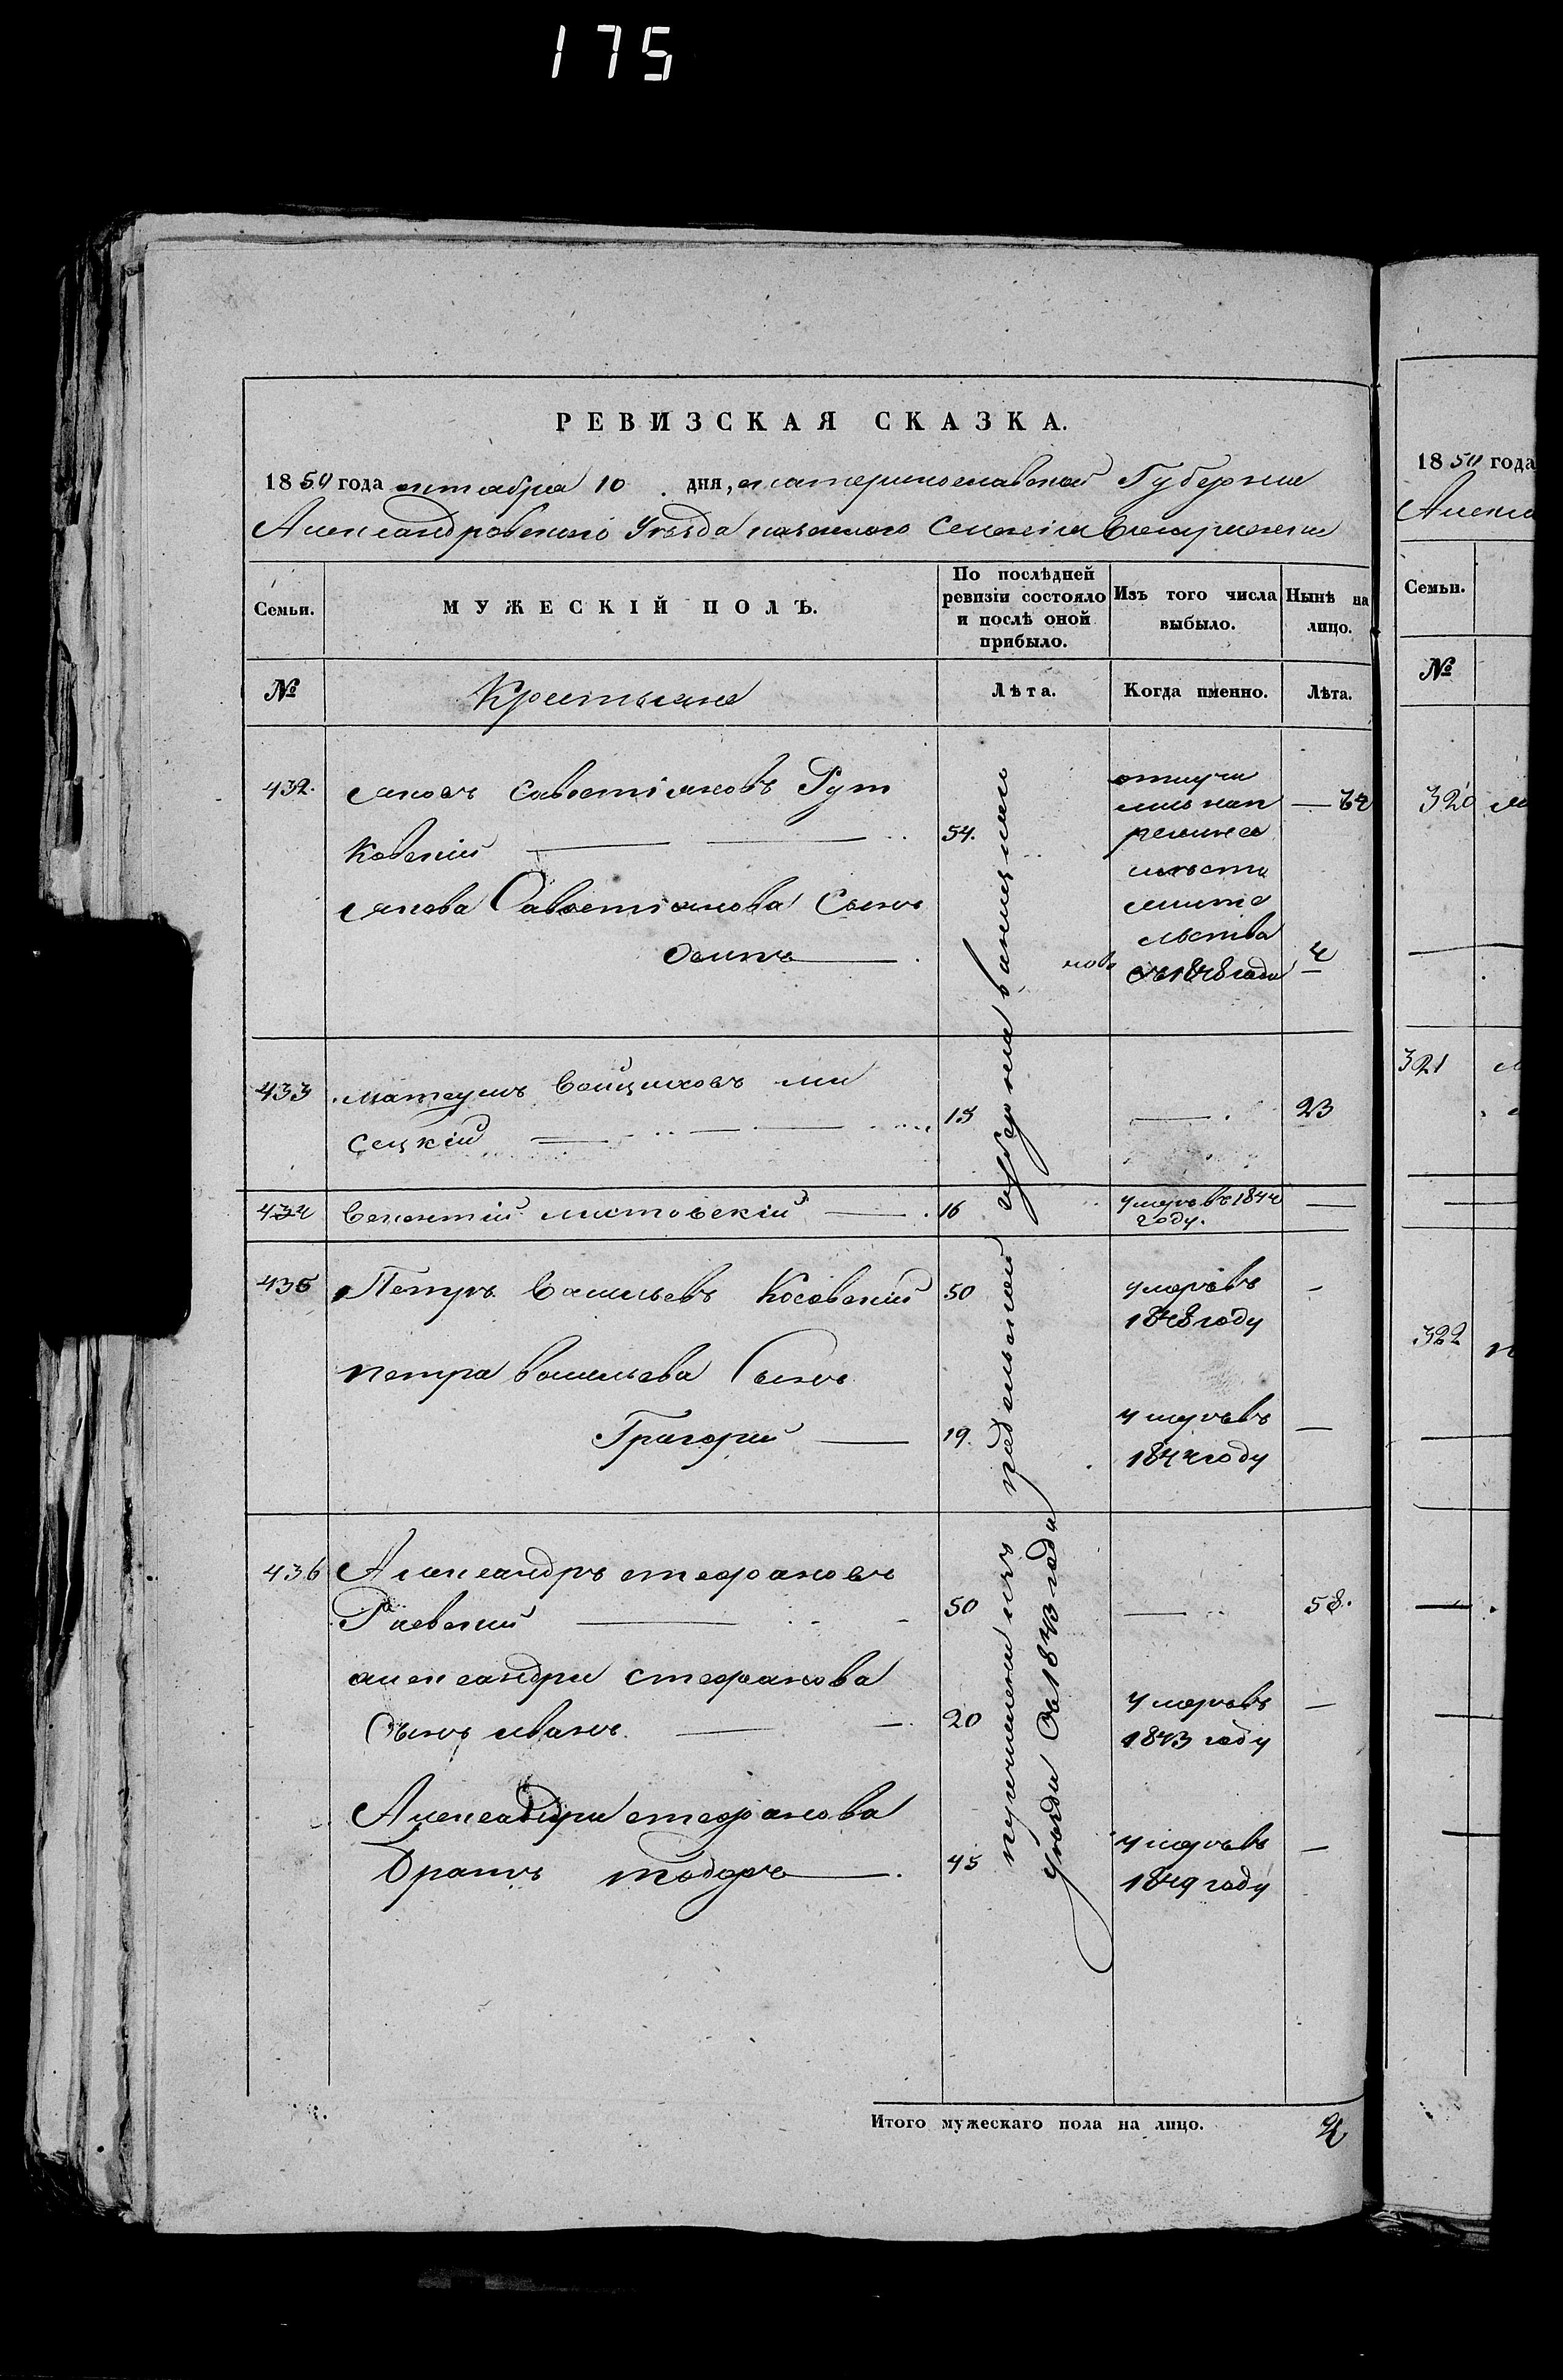 175
РЕВИЗСКАЯ СКАЗКА.
1850 года октября 10 дня, екатеринославской Губернии
Александровского Уезда казенного Селенія
Семьи.
МУЖЕСКІЙ ПОЛЪ.
По послѣдней ревизіи состояло и послѣ оной прибыло.
Изъ того числа выбыло.
Нынѣ на лицо.
№
Крестьяне
Лѣта.
Когда именно.
Лѣта.
432.
Яковъ Савостіяновъ Рут
ковскій
54.
Якова Савостіянова Сынъ
Осипъ
ново
съ 1848 года
4
433
Матеушъ Войцеховъ Ли
сецкій
15
23
434
Викентій Листовскій
16
умеръ въ 1844
году.
435
Петръ Васильевъ Косовскій
50
умеръ въ
1848 году
петра васильева Сынъ
Григорій
19.
умеръ въ
1844 году
436
Александръ стефановъ
Раевскій
50
58.
александра стефанова
Сынъ иванъ
20
умеръ въ
1843 году
Александра стефанова
Братъ тодоръ
45
умеръ въ
1849 году
причислены изъ подольской губерніи
уезда Съ 1843 года
Итого мужескаго пола на лицо.
4
1850 года
Семьи.
№
320
321
322